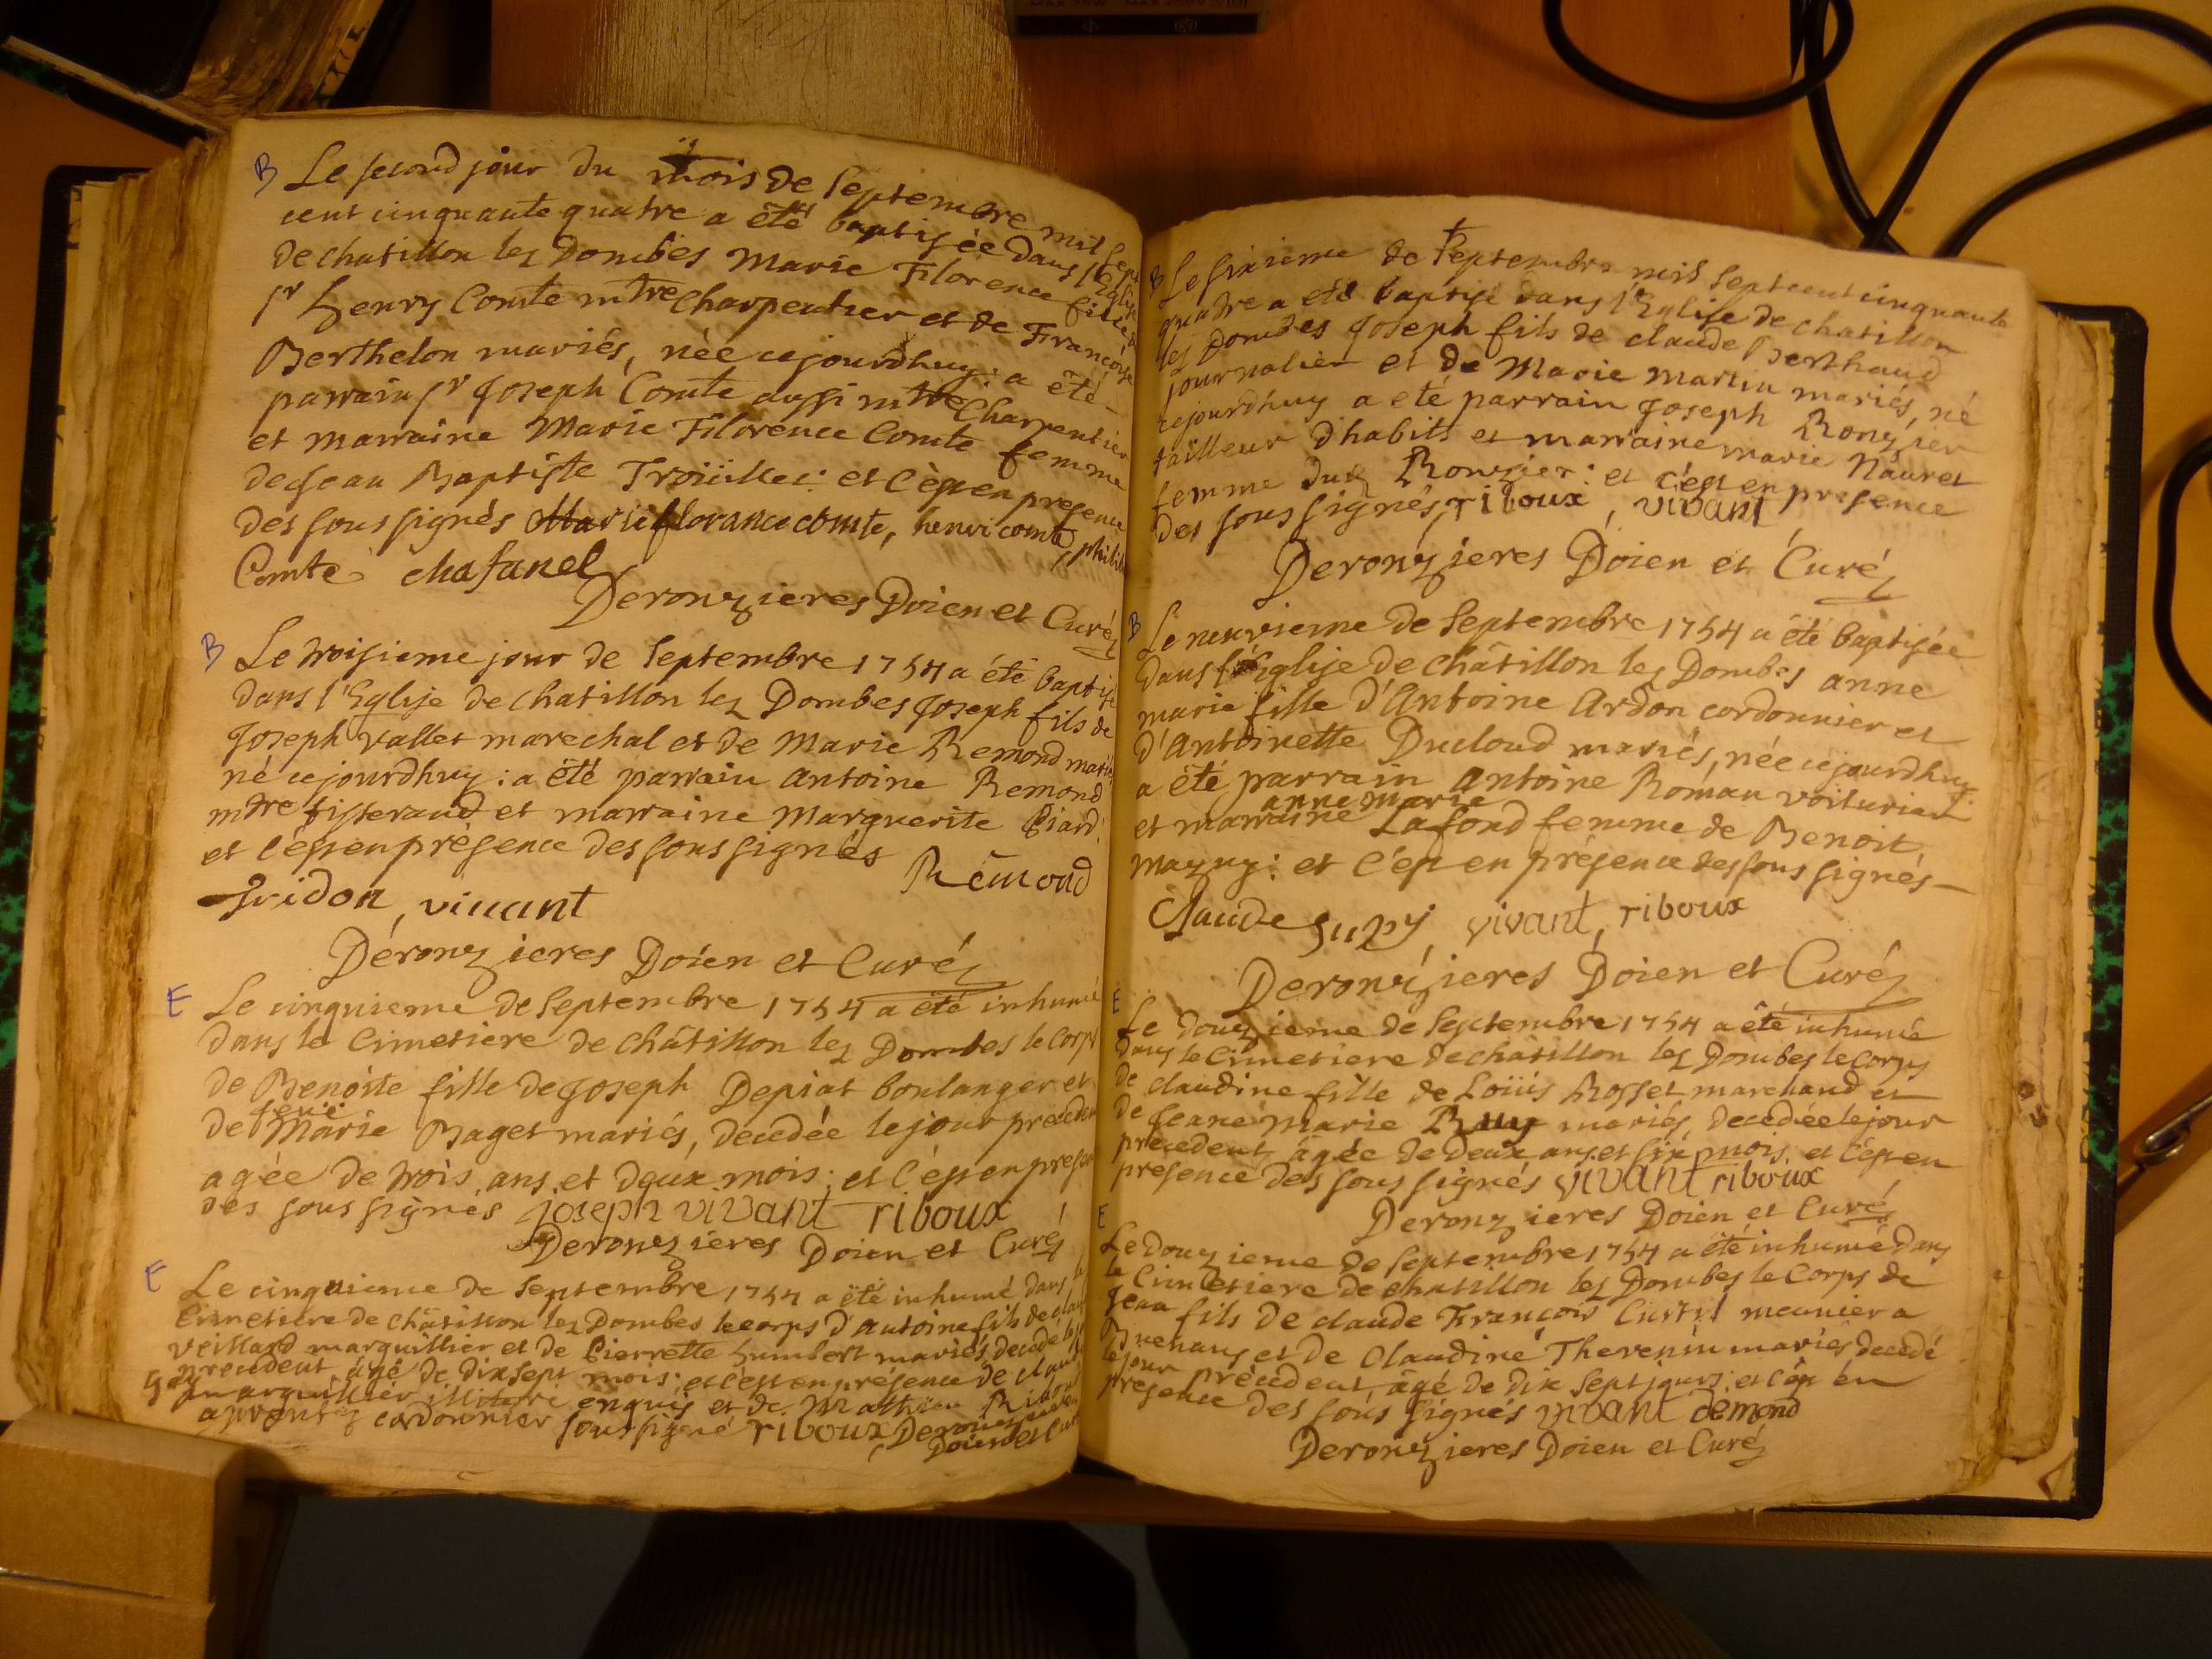 B Le second jour du mois de Septembre mil sept
cent cinquante quatre a été baptisée dans l'Eglise
de chatillon lez Dombes Marie Filorence fille de
Sr henry Comte mtre Charpentier et de Françoise
Berthelon mariés, née cejourdhuy: a été
parrain Sr Joseph Comte aussi mtre Charpentier
et marraine Marie Filorence Comte femme
de Jean Baptiste Troüillet: et c'est en presence
des sous signés Marie florance comte, henri comte,
Comte chafanel
Deronzieres Doien et Curé
B Le troisieme jour de Septembre 1754 a été baptisé
dans l'Eglise de chatillon lez Dombes Joseph fils de
Joseph vallet marechal et de Marie Remond mariés
né cejourdhuy: a été parrain antoine Remond
mtre tisserand et marraine Marguerite Piard:
et c'est en présence des sous signés Rémond
Fridon, vivant
Déronzieres Doien et Curé
E Le cinquieme de Septembre 1754 a été inhumé
dans le Cimetiere de châtillon lez Dombes le corps
de Benoite fille de Joseph Depiat boulanger et
de feuë Marie Baget mariés, decedée le jour precedent
agée de trois ans et deux mois: et c'est en presence
des sous signés joseph vivant riboux
Deronzieres Doien et Curé
E Le cinquieme de Septembre 1754 a été inhumé dans le
Cimetiere de châtillon lez Dombes le corps d'antoine fils de claude
veillard marguillier et de Pierrette humbert mariés decedé le jour
precedent, âgé de dix sept mois: et c'est en presence de claude
marguillier illiteré enquis et de Mathieu Riboux
cordonnier soussigné riboux Deronzieres
Doien et Curé
B Le sixieme de Septembre mil Sept cent cinquante
quatre a été baptisé dans l'Eglise de chatillon
lez Dombes Joseph fils de claude Berthaud
journalier et de Marie Martin mariés, né
cejourdhuy a été parrain Joseph Ronzier
tailleur d'habits et marraine marie Nauret
femme dud Ronzier: et c'est en presence
des sous signés, riboux, vivant
Deronzieres Doien et Curé
B Le neuvieme de Septembre 1754 a été baptisée
dans l'Eglise de châtillon lez Dombes anne
marie fille d'Antoine Ardon cordonnier et
d'Antoinette Ducloud mariés, née cejourdhuy:
a été parrain antoine Roman voiturier
et marraine anne marie Lafond femme de Benoit
mazuy: et c'est en présence des sous signés
Claude supy, vivant, riboux
Deronzieres Doien et Curé
E Le douzieme de Septembre 1754 a été inhumé
dans le Cimetiere de châtillon lez Dombes le Corps
de claudine fille de Loüis Rosset marchand et
de Jeane Marie mariés, decedée le jour
précedent, âgée de deux ans et six mois, et c'est en
presence des sous signés vivant riboux
Deronzieres Doien et Curé
E Le douzieme de Septembre 1754 a été inhumé dans
le Cimetiere de chatillon lez Dombes le Corps de
Jean fils de claude François Curtil meunier a
Brenans et de Claudine Thevenin mariés decedé
le jour précedent, âgé de dix sept jours; et c'est en
presence des sous signés vivant démond
Deronzieres Doien et Curé